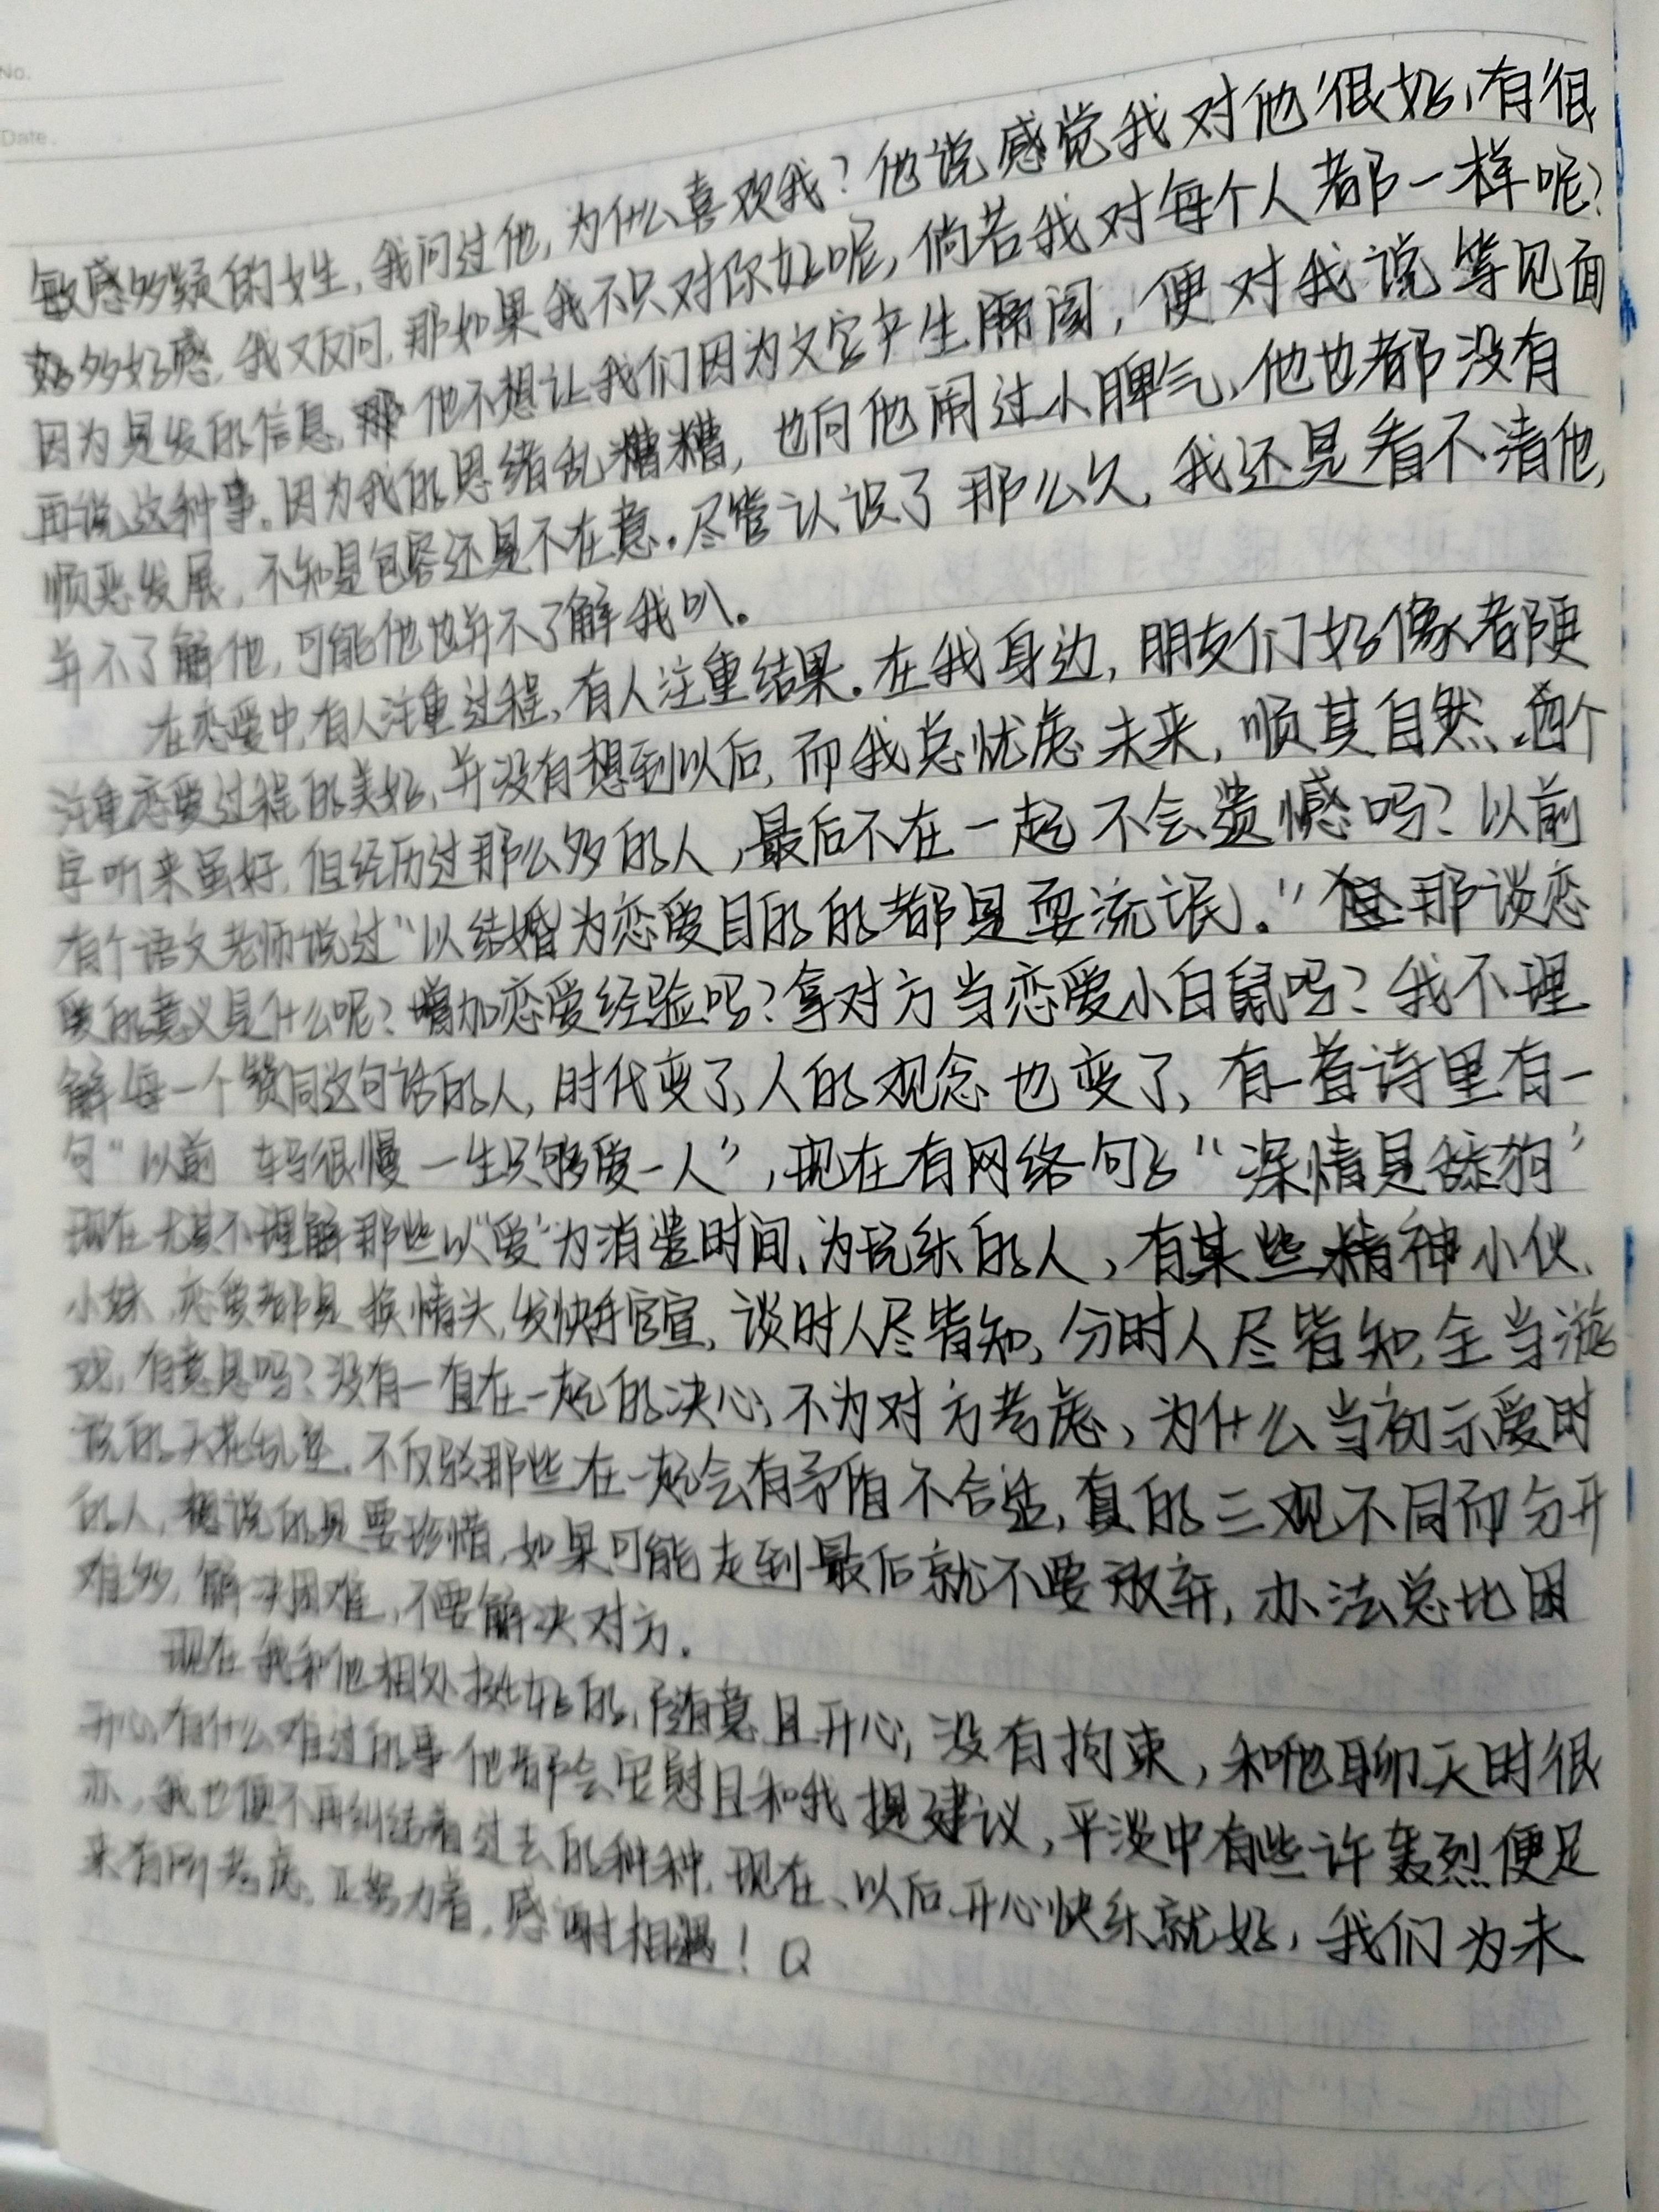 No.
Date.
敏感多疑的女生,我问过他,为什么喜欢我?他说感觉我对他很好,有很
好多好感,我又反问,那如果我不只对你好呢,倘若我对每个人都一样呢?
因为是发的信息,他不想让我们因为文字产生隔阂,便对我说等见面
再说这种事。因为我的思绪乱糟糟,也向他闹过小脾气,他也都没有
顺恶发展,不知是包容还是不在意。尽管认识了那么久,我还是看不清他,
并不了解他,可能他也并不了解我叭。
在恋爱中,有人注重过程,有人注重结果。在我身边,朋友们好像都更
注重恋爱过程的美好,并没有想到以后,而我总忧虑未来,顺其自然,四个
字听来虽好,但经历过那么多的人,最后不在一起不会遗憾吗?以前
有个语文老师说过“以结婚为恋爱目的的都是耍流氓。”但那谈恋
爱的意义是什么呢?增加恋爱经验吗?拿对方当恋爱小白鼠吗?我不理
解每一个赞同这句话的人,时代变了,人的观念也变了,有一首诗里有一
句“以前 车马很慢 一生只够爱一人”,现在有网络句子“深情是舔狗”
现在尤其不理解那些以“爱”为消遣时间、为玩乐的人,有某些精神小伙、
小妹,恋爱都是换情头,发快手官宣,谈时人尽皆知,分时人尽皆知,全当游
戏,有意思吗?没有一直在一起的决心,不为对方考虑,为什么当初示爱时
说的天花乱坠,不反驳那些在一起会有矛盾不合适,真的三观不同而分开
的人,想说的是要珍惜,如果可能走到最后就不要放弃,办法总比困
难多,解决困难,不要解决对方。
现在我和他相处挺好的,随意且开心,没有拘束,和他聊天时很
开心,有什么难过的事他都会安慰且和我提建议,平淡中有些许轰烈便足
亦,我也便不再纠结着过去的种种,现在、以后开心快乐就好,我们为未
来有所考虑,正努力着,感谢相遇!Q